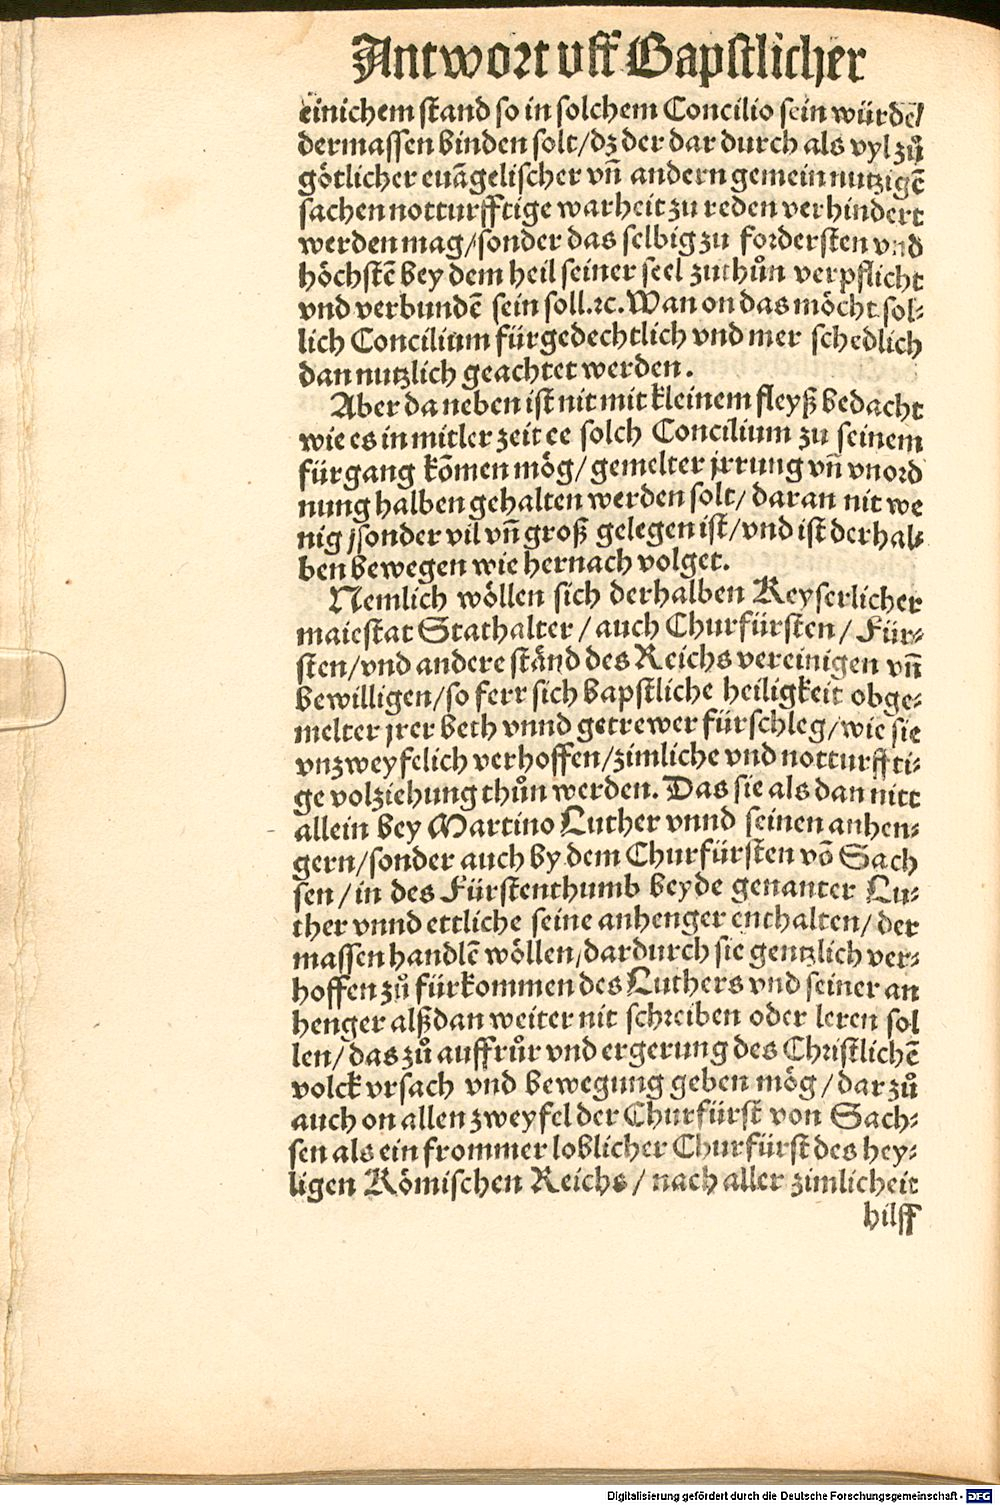 Antwort vff Bapstlicher
einichem stand so in solchem Concilio sein würde/
dermassen binden solt/dz der dar durch als vyl zů
götlicher euãgelischer vñ andern gemein nutzigẽ
sachen notturfftige warheit zu reden verhindert
werden mag/sonder das selbig zu fordersten vnd
höchstẽ bey dem heil seiner seel zuthůn verpflicht
vnd verbundẽ sein soll.ꝛc. Wan on das möcht sol⸗
lich Concilium fürgedechtlich vnd mer schedlich
dan nutzlich geachtet werden.
Aber da neben ist nit mit kleinem fleyß bedacht
wie es in mitler zeit ee solch Concilium zu seinem
fürgang kõmen mög/ gemelter jrrung vñ vnord
nung halben gehalten werden solt/ daran nit we
nig jsonder vil vñ groß gelegen ist/vnd ist derhal⸗
ben bewegen wie hernach volget.
Nemlich wöllen sich derhalben Keyserlicher
maiestat Stathalter / auch Churfürsten / Für⸗
sten/vnd andere ständ des Reichs vereinigen vñ
bewilligen/so ferr sich bapstliche heiligkeit obge⸗
melter jrer beth vnnd getrewer fürschleg/wie sie
vnzweyfelich verhoffen/zimliche vnd notturffti⸗
ge volziehung thůn werden. Das sie als dan nitt
allein bey Martino Luther vnnd seinen anhen⸗
gern/sonder auch by dem Churfürsten võ Sach
sen / in des Fürstenthumb beyde genanter Lu⸗
ther vnnd ettliche seine anhenger enthalten/ der
massen handlẽ wöllen/dardurch sie gentzlich ver⸗
hoffen zů fürkommen des Luthers vnd seiner an
henger alßdan weiter nit schreiben oder leren sol
len/ das zů auffrůr vnd ergerung des Christlichẽ
volck vrsach vnd bewegung geben mög / dar zů
auch on allen zweyfel der Churfürst von Sach⸗
sen als ein frommer loblicher Churfürst des hey⸗
ligen Römischen Reichs / nach aller zimlicheit
hilff
Digitalisierung gefördert durch die Deutsche Forschungsgemeinschaft - DFG